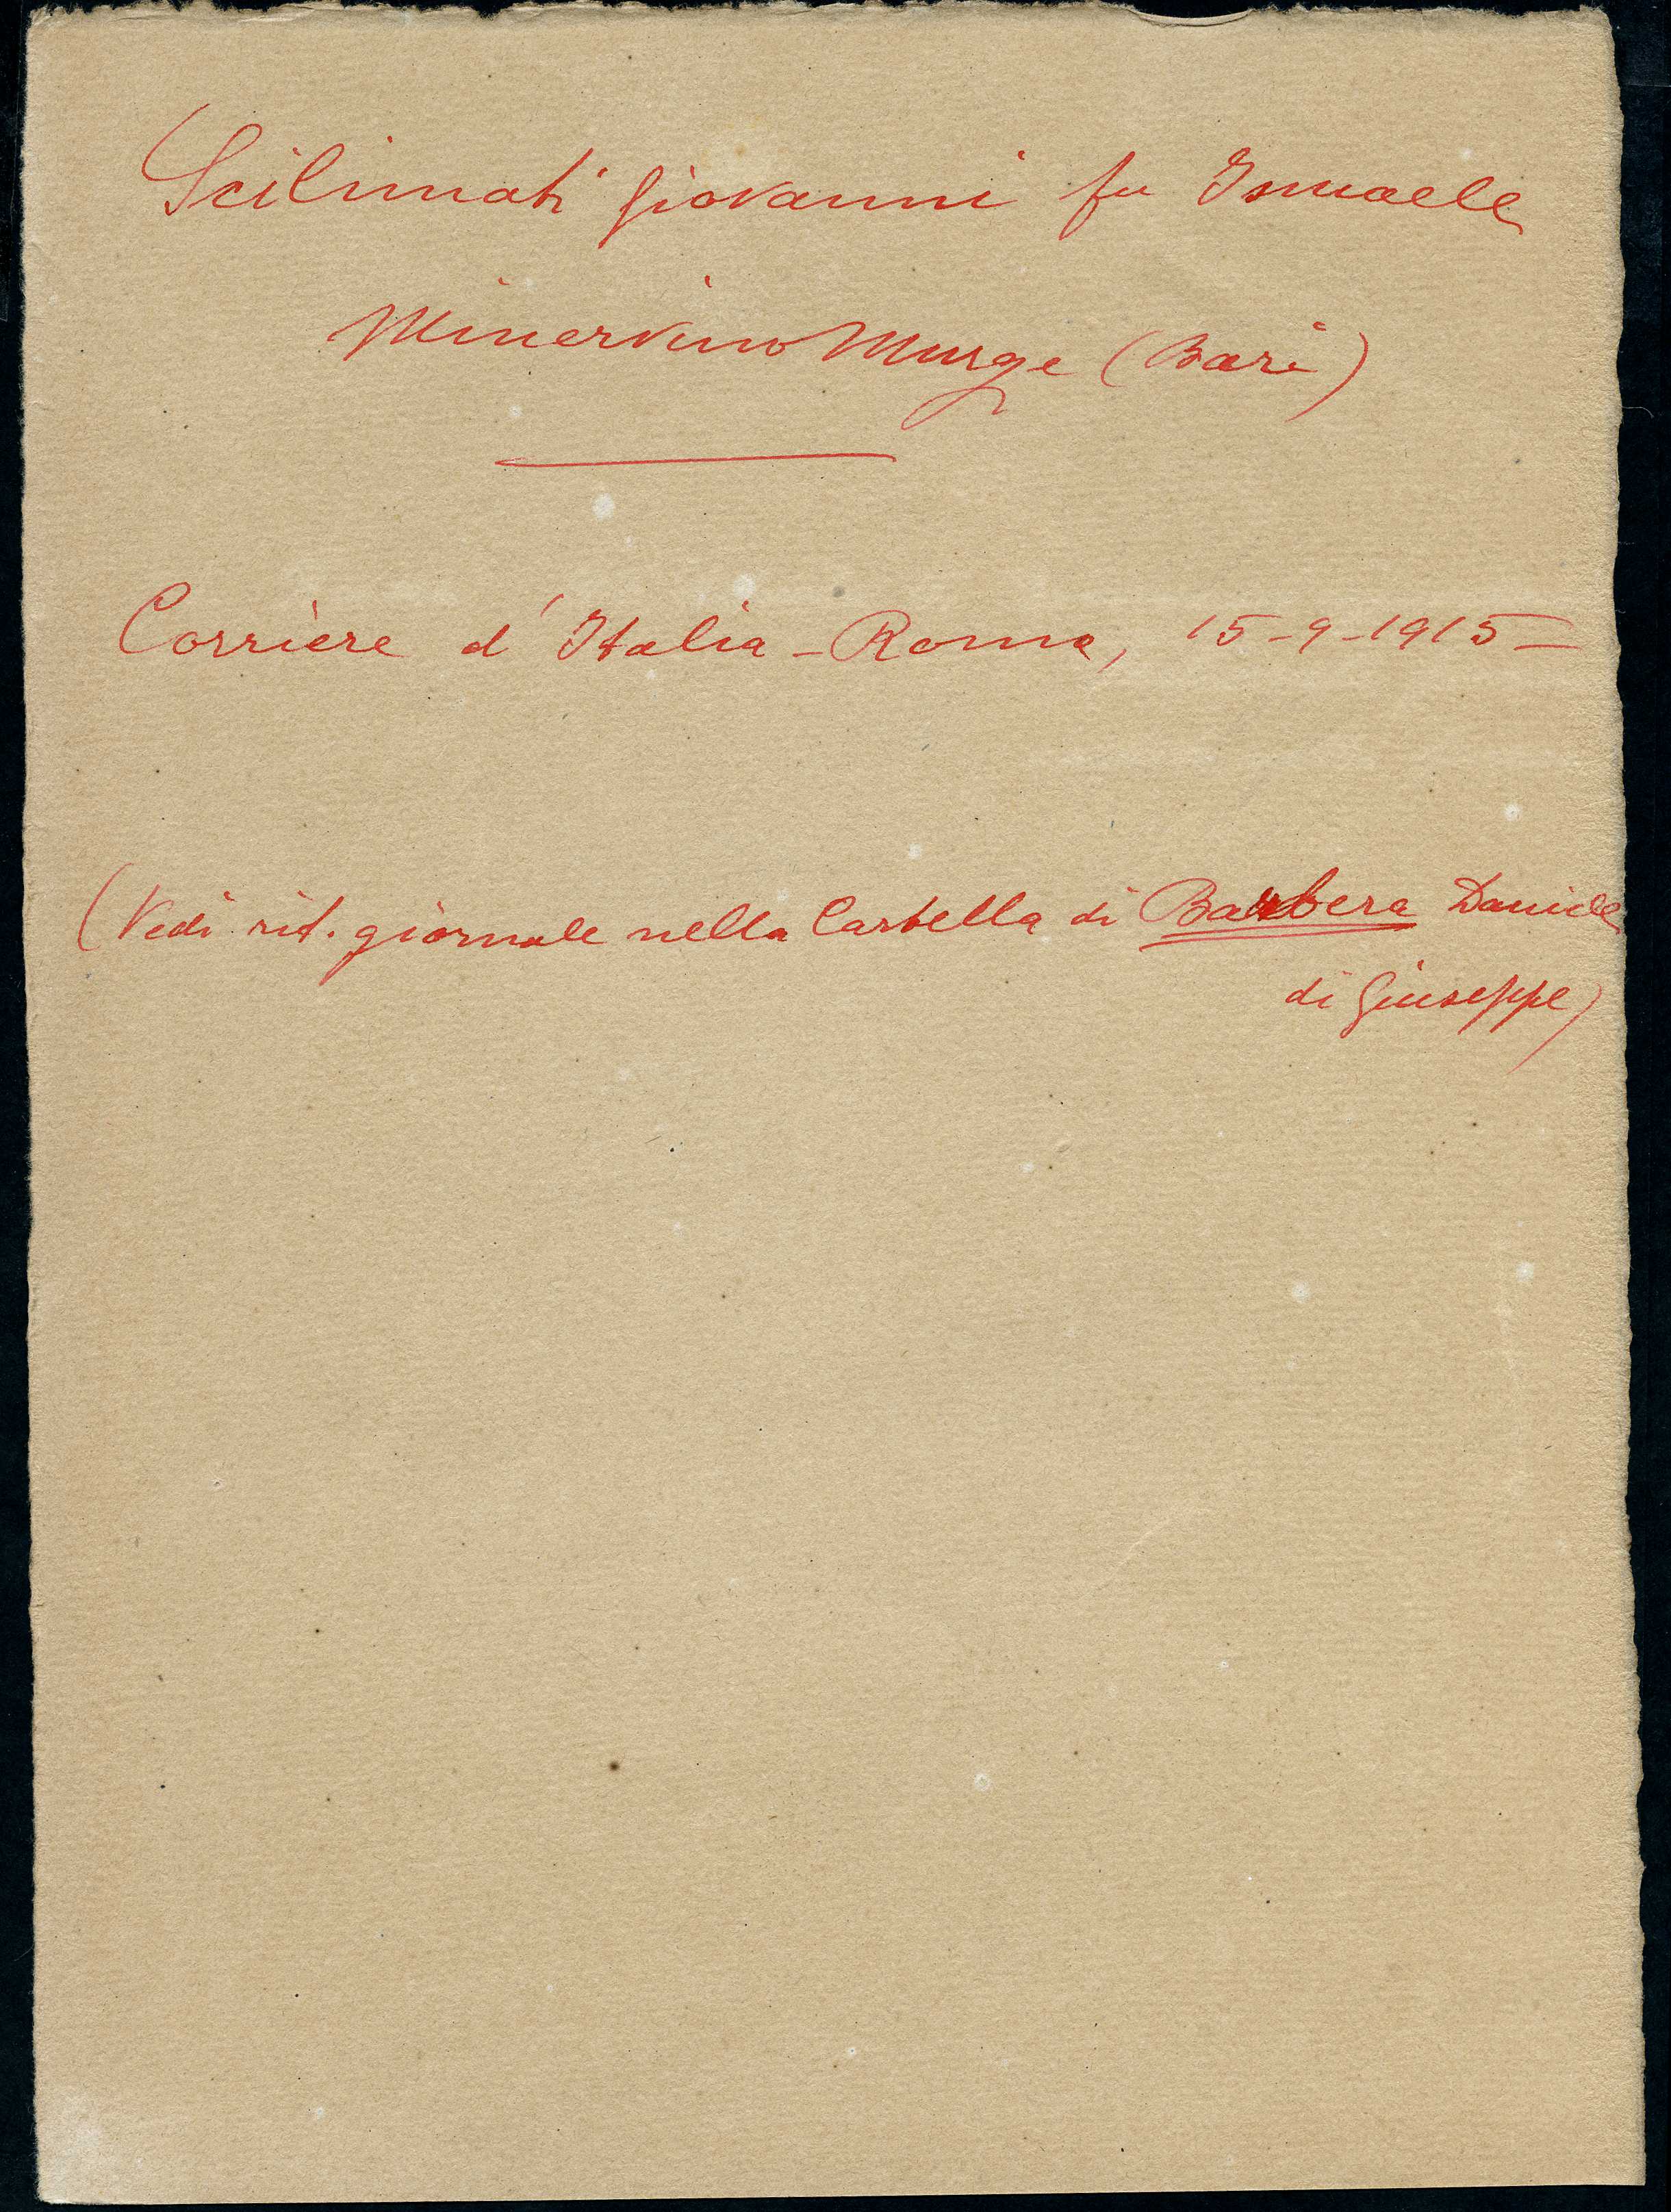 Scilimati Giovanni fu Ismaele
Minervino Murge (Bari)
Corriere d'Italia - Roma, 15-9-1915 -
(Vedi rit. giornale nella Cartella di Barbera Daniele
di Giuseppe)